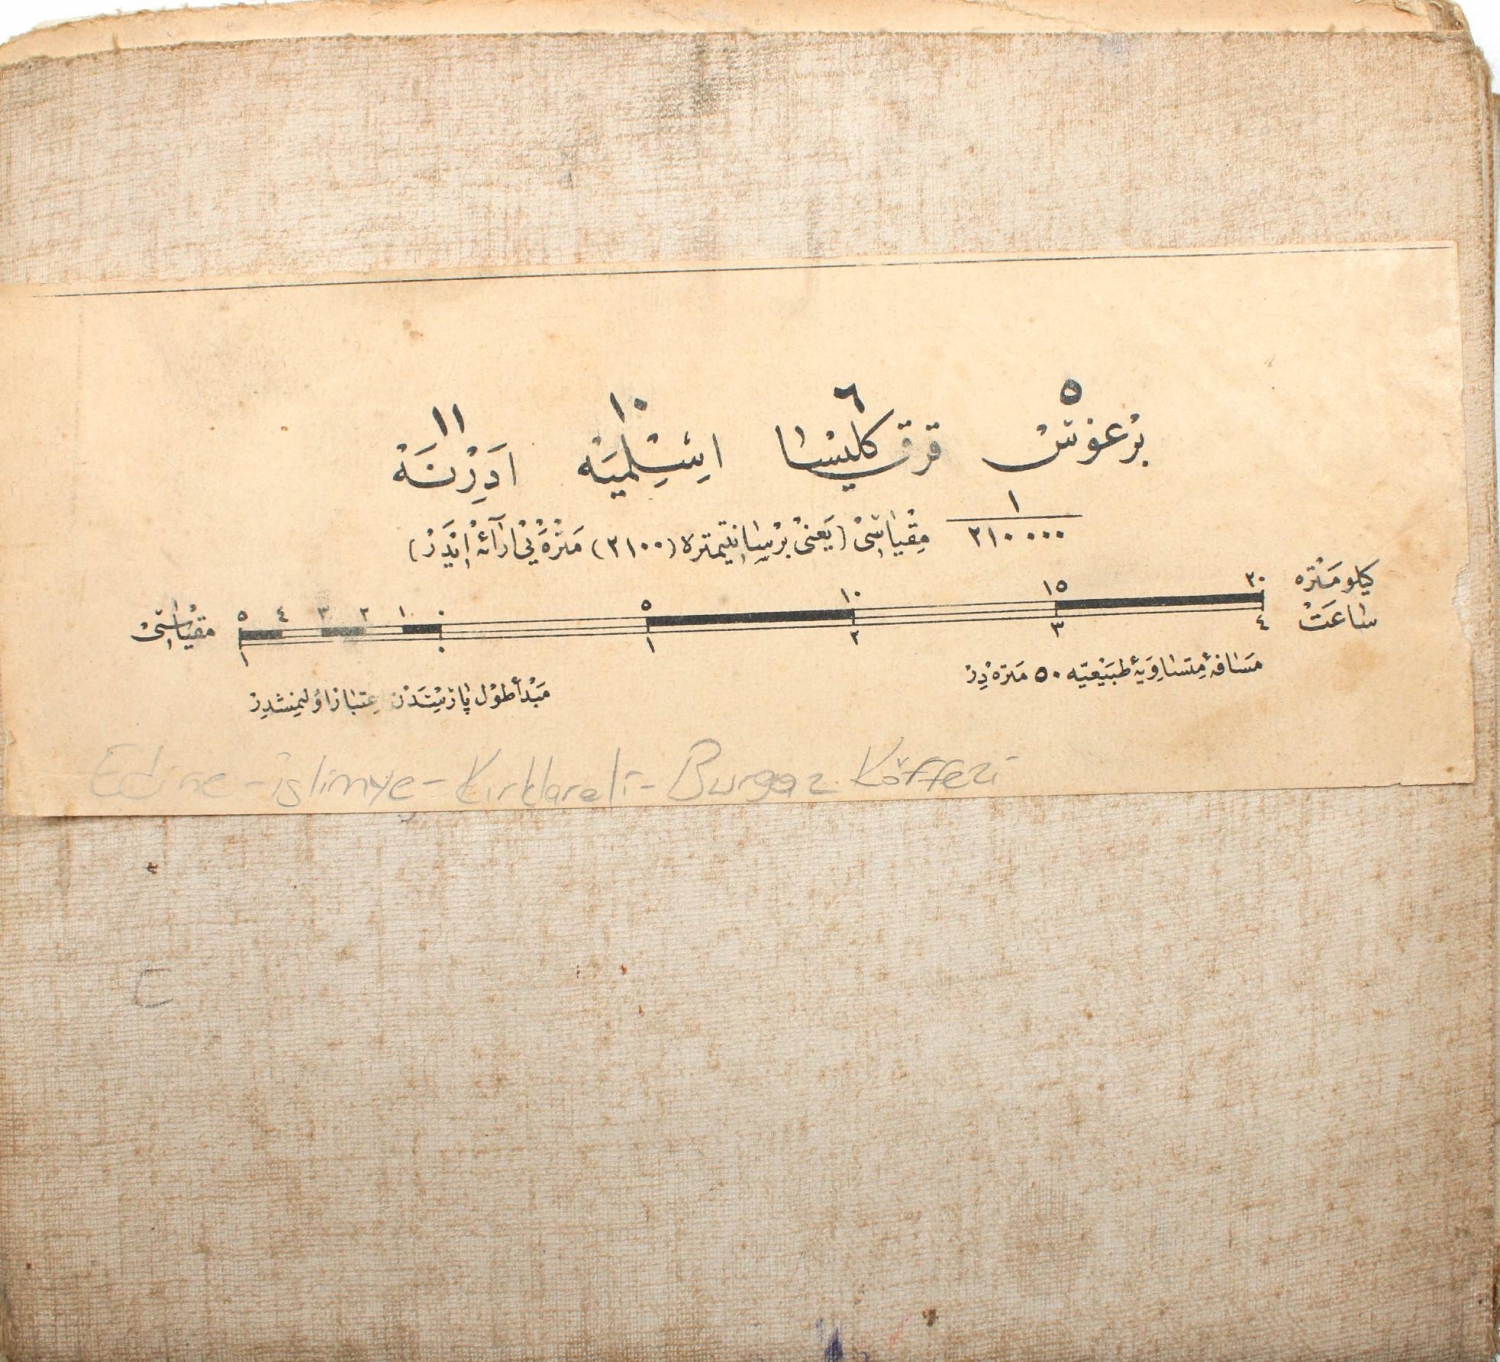 ٥ ٦ ١٠ ١١
برغوس قرق كليسا اسلميه ادرنه
١
٢١٠٠٠٠ مقياسى (يعنى بر سانتيمتره (٢١٠٠) متره يى ارائه ايدر)
كيلومتره ٢٠ ١٥ ١٠ ٥ ٠ ١ ٢ ٣ ٤ ٥ مقياسى
ساعت ٤ ٣ ٢ ١ ٠ ١
مسافهٔ متساويهٔ طبيعيه ٥٠ متره در
مبدأ طول پاریسدن اعتبار اولنمشدر
Edirne - islimye - Kırklareli - Burgaz